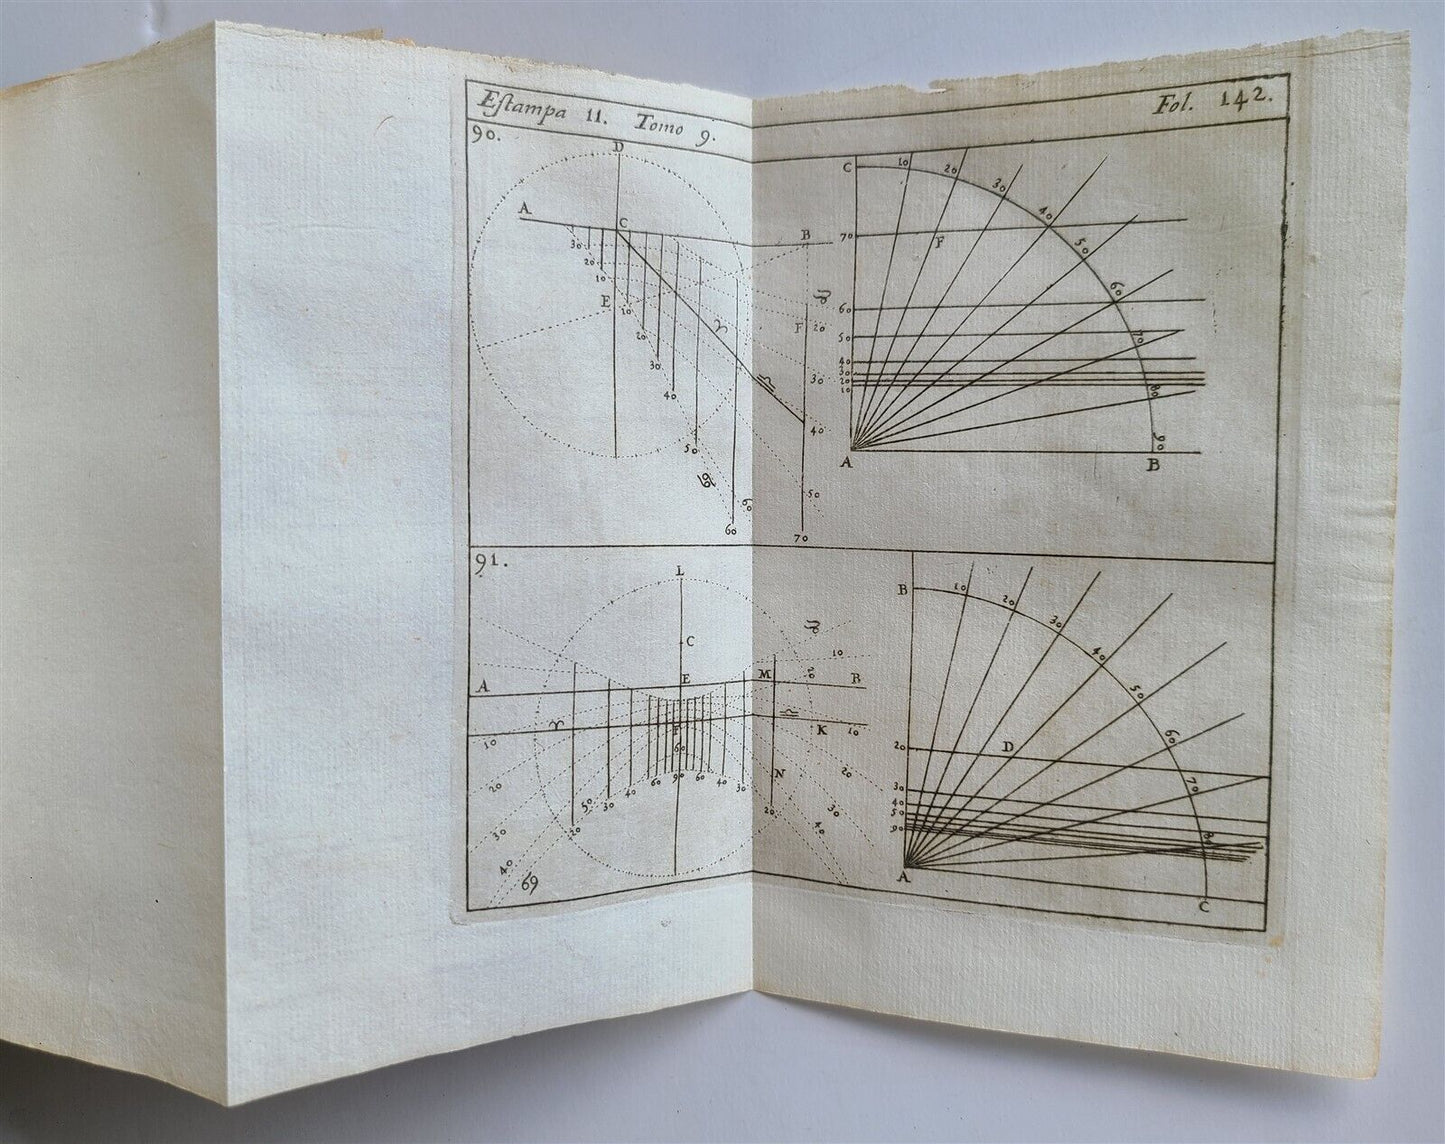 Eſtampa 11. Tomo 9. Fol. 142.
90.
D
A
C
B
30
20
10
E
10
20
30
40
50
60
70
♈
♎
♑
F
20
30
40
50
69
C
10
20
30
40
50
60
70
80
90
70
F
60
50
40
30
20
10
A
B
91.
L
C
A
E
M
B
10
20
♈
♎
F
K
10
10
20
30
40
50
69
60
20
30
40
60
90
60
40
30
20
N
20
30
40
♑
B
10
20
30
40
50
60
70
80
20
D
30
40
50
90
A
C